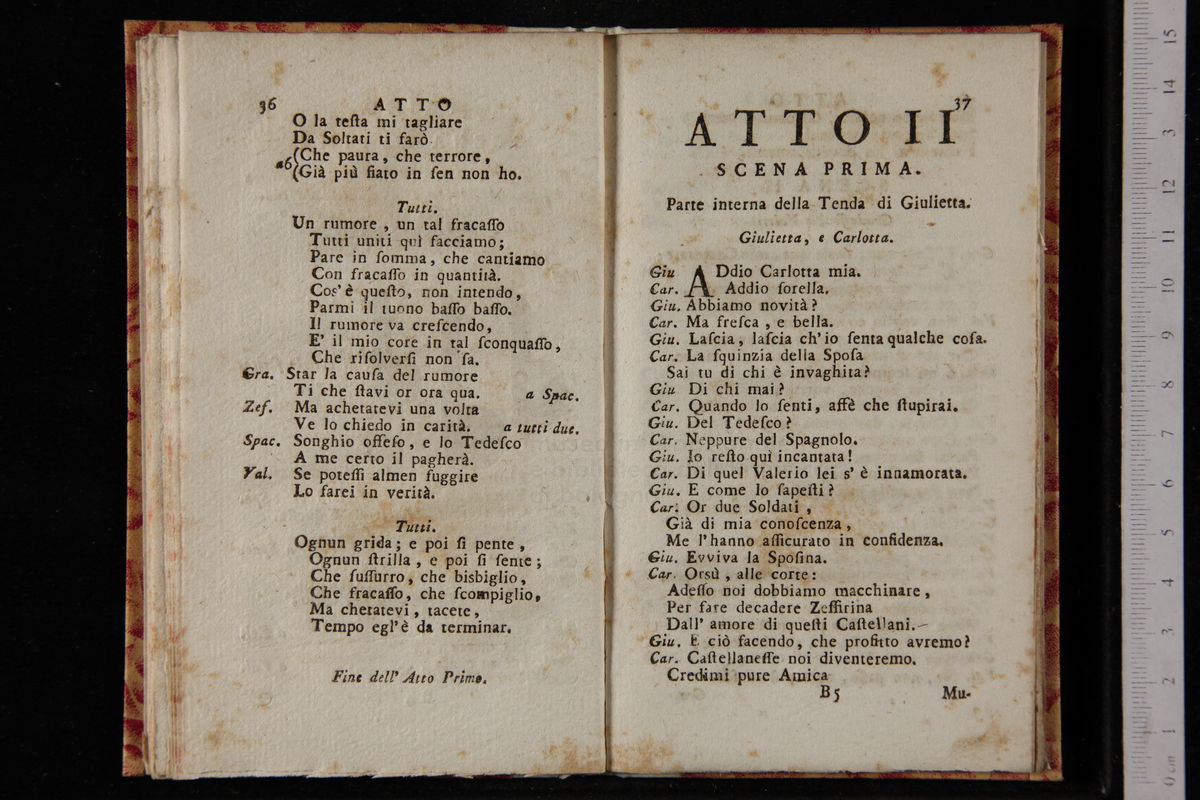 36 ATTO
O la teſta mi tagliare
Da Soltati ti farò
a6 (Che paura, che terrore,
(Già più fiato in ſen non ho.
Tutti.
Un rumore, un tal fracaſſo
Tutti uniti quì facciamo;
Pare in ſomma, che cantiamo
Con fracaſſo in quantità.
Cos' è queſto, non intendo,
Parmi il tuono baſſo baſſo.
Il rumore va creſcendo,
E' il mio core in tal ſconquaſſo,
Che riſolverſi non ſa.
Gra. Star la cauſa del rumore
Ti che ſtavi or ora qua. a Spac.
Zef. Ma achetatevi una volta
Ve lo chiedo in carità. a tutti due.
Spac. Songhio offeſo, e lo Tedeſco
A me certo il pagherà.
Val. Se poteſſi almen fuggire
Lo farei in verità.
Tutti.
Ognun grida; e poi ſi pente,
Ognun ſtrilla, e poi ſi ſente;
Che ſuſſurro, che bisbiglio,
Che fracaſſo, che ſcompiglio,
Ma chetatevi, tacete,
Tempo egl' è da terminar.
Fine dell' Atto Primo.
37
ATTO II
SCENA PRIMA.
Parte interna della Tenda di Giulietta.
Giulietta, e Carlotta.
Giu ADdio Carlotta mia.
Car. Addio ſorella.
Giu. Abbiamo novità?
Car. Ma freſca, e bella.
Giu. Laſcia, laſcia ch' io ſenta qualche coſa.
Car. La ſquinzia della Spoſa
Sai tu di chi è invaghita?
Giu Di chi mai?
Car. Quando lo ſenti, affè che ſtupirai.
Giu. Del Tedeſco?
Car. Neppure del Spagnolo.
Giu. Io reſto quì incantata!
Car. Di quel Valerio lei s' è innamorata.
Giu. E come lo ſapeſti?
Car. Or due Soldati,
Già di mia conoſcenza,
Me l' hanno aſſicurato in confidenza.
Giu. Evviva la Spoſina.
Car. Orsù, alle corte:
Adeſſo noi dobbiamo macchinare,
Per fare decadere Zeffirina
Dall' amore di queſti Caſtellani.
Giu. E ciò facendo, che profitto avremo?
Car. Caſtellaneſſe noi diventeremo.
Credimi pure Amica
B5 Mu-
15
14
3
12
11
10
9
8
7
6
5
4
3
2
1
0 cm